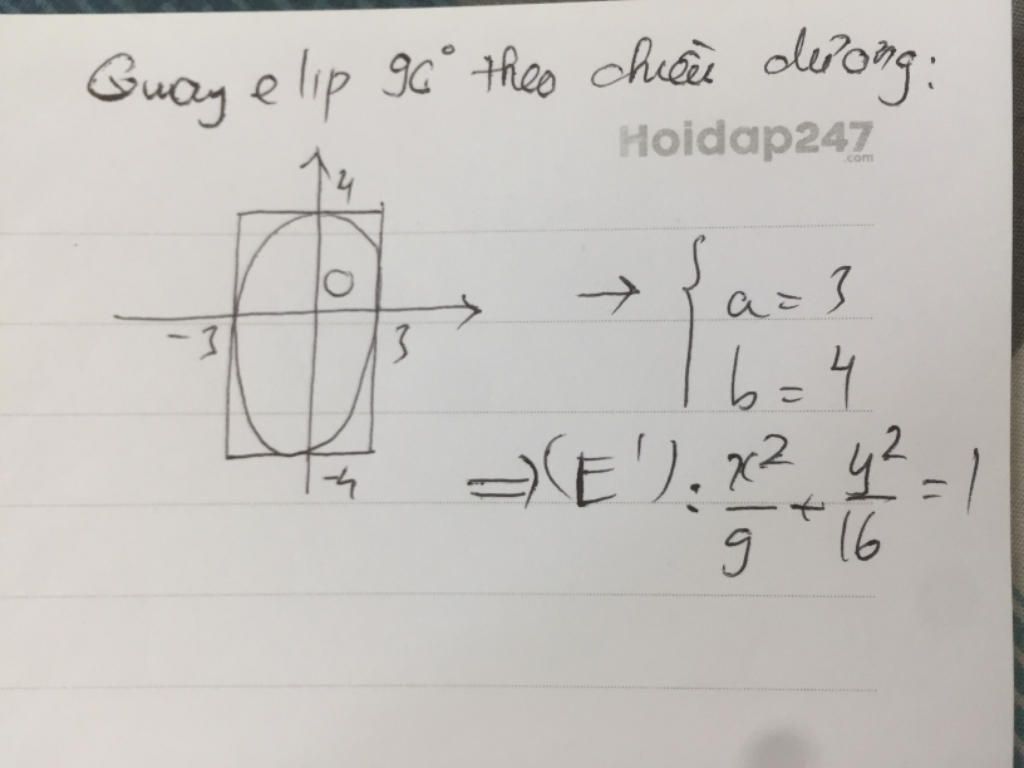 Quay elip 90° theo chiều dương:
Hoidap247
.com
4
O
-3 3
-4
→ { a = 3
b = 4
=> (E'): x²/9 + y²/16 = 1